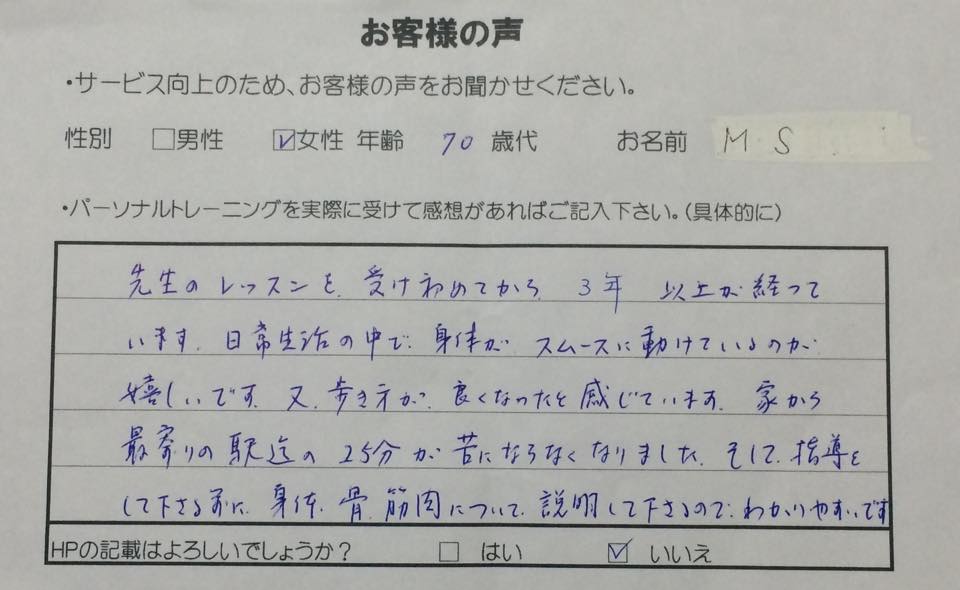 お客様の声
・サービス向上のため、お客様の声をお聞かせください。
性別 □男性 ☑女性 年齢 70 歳代 お名前 M・S
・パーソナルトレーニングを実際に受けて感想があればご記入下さい。(具体的に)
先生のレッスンを、受け初めてから、3年 以上が経って
います。日常生活の中で、身体が スムースに動けているのが
嬉しいです。又、歩き方が、良くなったと感じています。家から
最寄りの駅迄の25分が苦にならなくなりました。そして、指導を
して下さる前に、身体、骨、筋肉について、説明して下さるので、わかりやすいです
HPの記載はよろしいでしょうか? □ はい ☑ いいえ